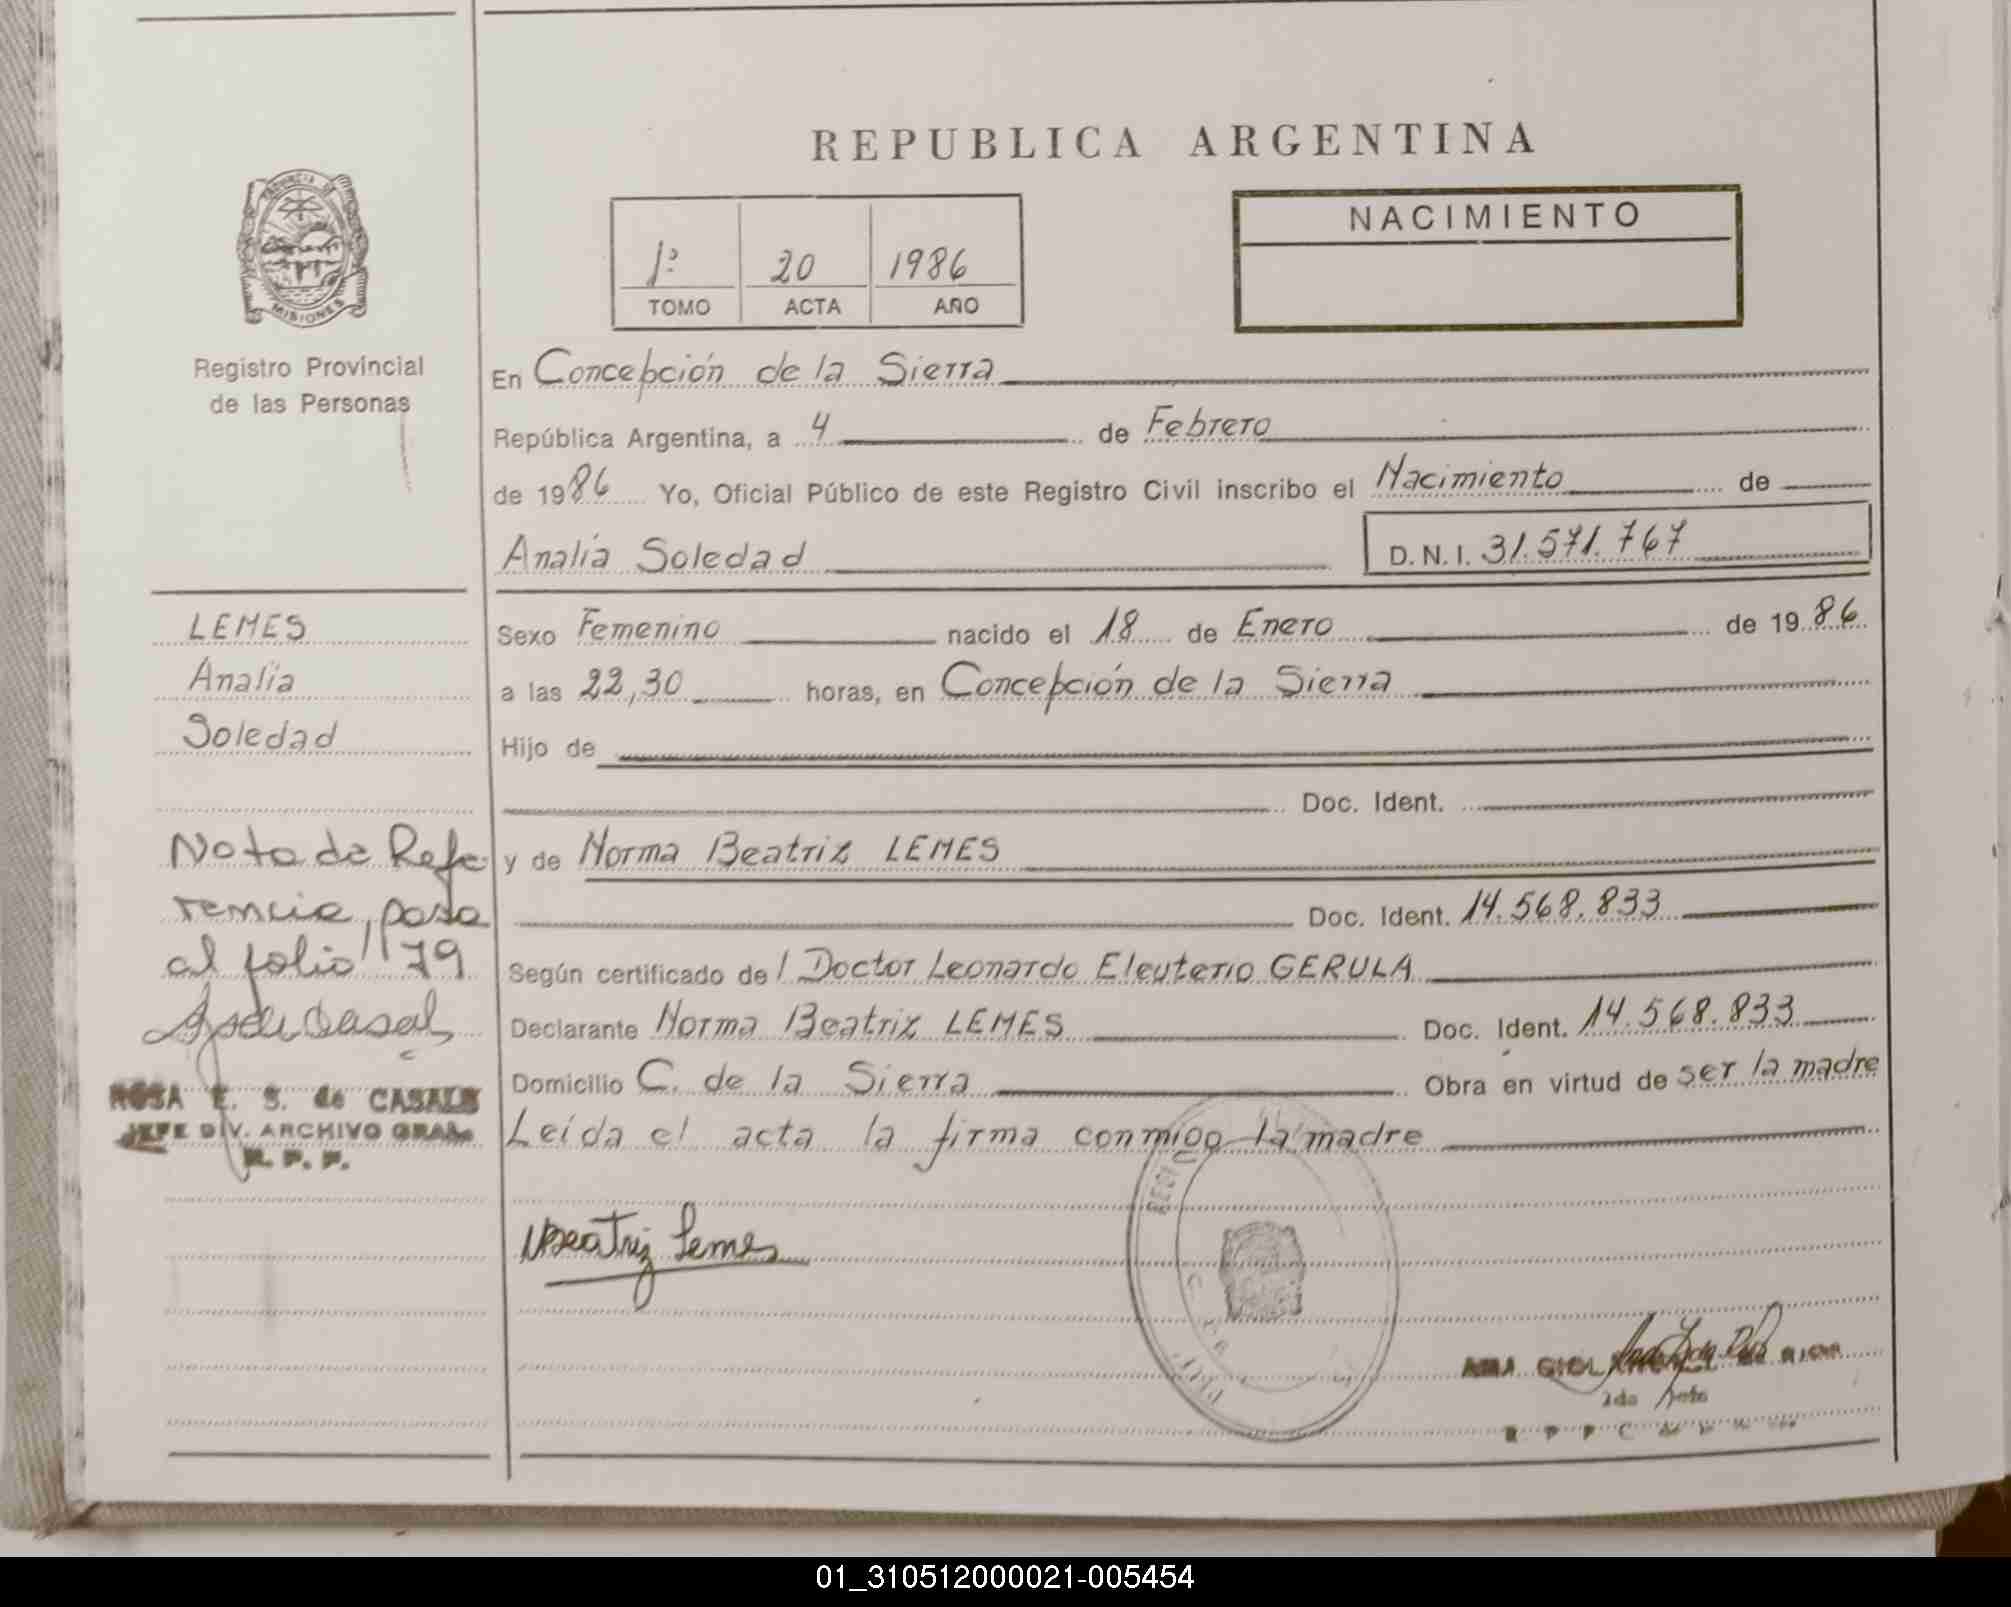 REPUBLICA ARGENTINA
PROVINCIA DE
MISIONES
Registro Provincial
de las Personas
1º 20 1986
TOMO ACTA AÑO
NACIMIENTO
En Concepción de la Sierra
República Argentina, a 4 de Febrero
de 1986 Yo, Oficial Público de este Registro Civil inscribo el Nacimiento de
Analía Soledad D.N.I. 31.571.767
LEMES
Analía
Soledad
Sexo Femenino nacido el 18 de Enero de 1986
a las 22,30 horas, en Concepción de la Sierra
Hijo de
Doc. Ident.
y de Norma Beatriz LEMES
Doc. Ident. 14.568.833
Según certificado del Doctor Leonardo Eleuterio GERULA
Declarante Norma Beatriz LEMES Doc. Ident. 14.568.833
Domicilio C. de la Sierra Obra en virtud de ser la madre
Leída el acta la firma conmigo la madre
Nota de Refe
rencia, pasa
al folio 179
ROSA E. S. de CASALS
JEFE DIV. ARCHIVO GRAL.
R. P. P.
NBeatriz Lemes
01_310512000021-005454